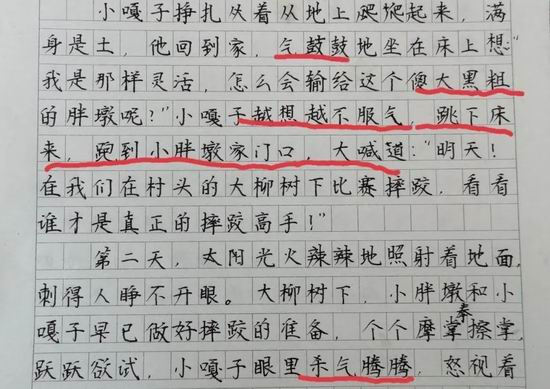 小嘎子挣扎从着从地上爬爬起来，满
身是土，他回到家，气鼓鼓地坐在床上想“
我是那样灵活，怎么会输给这个傻大黑粗
的胖墩呢？”小嘎子越想越不服气，跳下床
来，跑到小胖墩家门口，大喊道：“明天！
在我们在村头的大柳树下比赛摔跤，看看
谁才是真正的摔跤高手！”
第二天，太阳光火辣辣地照射着地面，
刺得人睁不开眼。大柳树下，小胖墩和小
嘎子早已做好摔跤的准备，个个摩拳擦掌，
跃跃欲试，小嘎子眼里杀气腾腾，怒视着